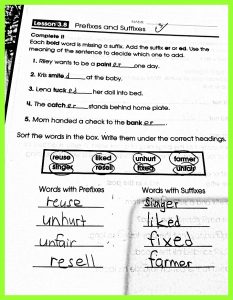 Lesson 3.8 Prefixes and Suffixes
NAME
Complete it
Each bold word is missing a suffix. Add the suffix er or ed. Use the
meaning of the sentence to decide which one to add.
1. Riley wants to be a paint er one day.
2. Kris smile d at the baby.
3. Lena tuck ed her doll into bed.
4. The catch er stands behind home plate.
5. Mom handed a check to the bank er.
Sort the words in the box. Write them under the correct headings.
reuse liked unhurt farmer
singer resell fixed unfair
Words with Prefixes Words with Suffixes
reuse singer
unhurt liked
unfair fixed
resell farmer